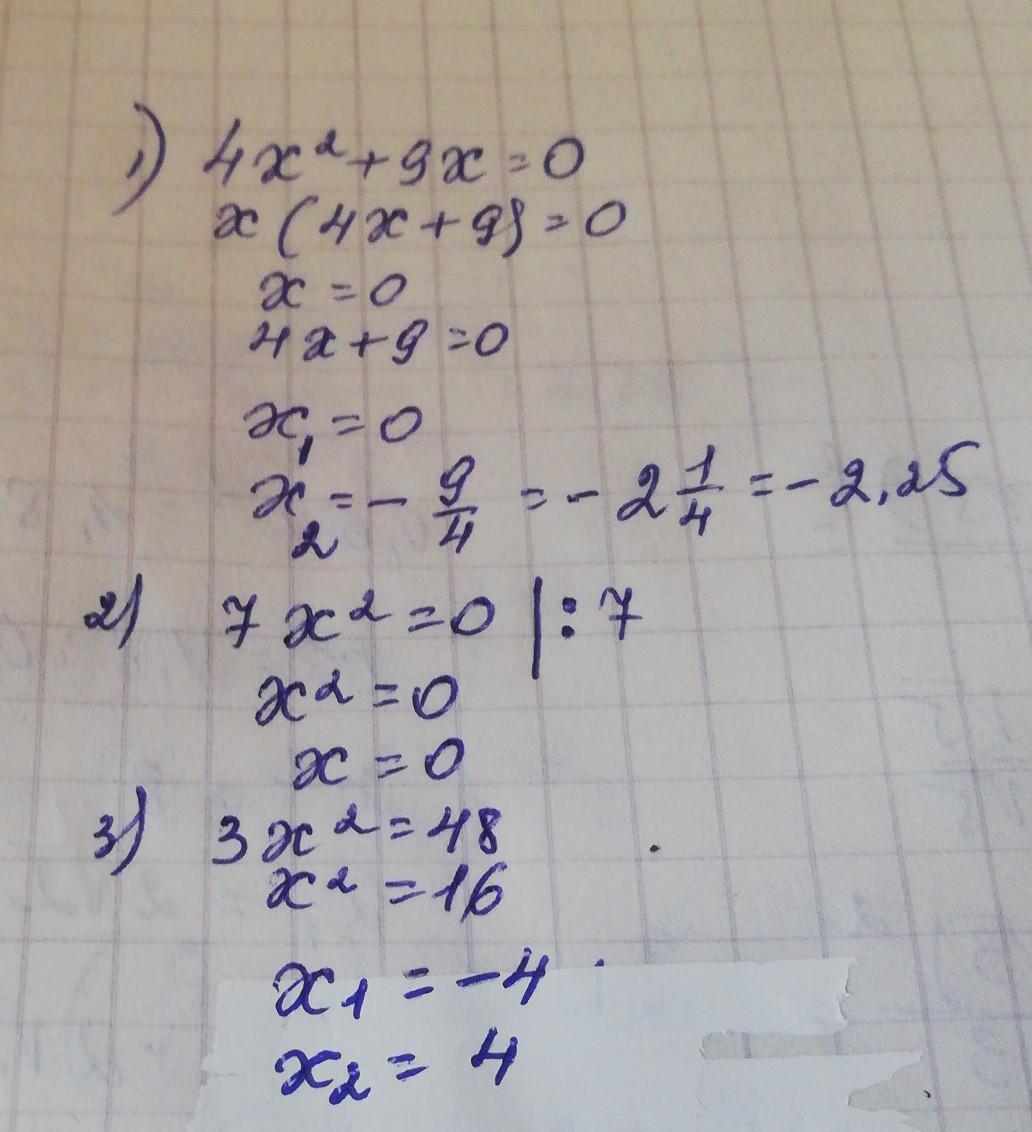 1) 4x² + 9x = 0
x (4x + 9) = 0
x = 0
4x + 9 = 0
x₁ = 0
x₂ = - 9/4 = - 2 1/4 = - 2,25
2) 7x² = 0 | : 7
x² = 0
x = 0
3) 3x² = 48
x² = 16
x₁ = -4
x₂ = 4